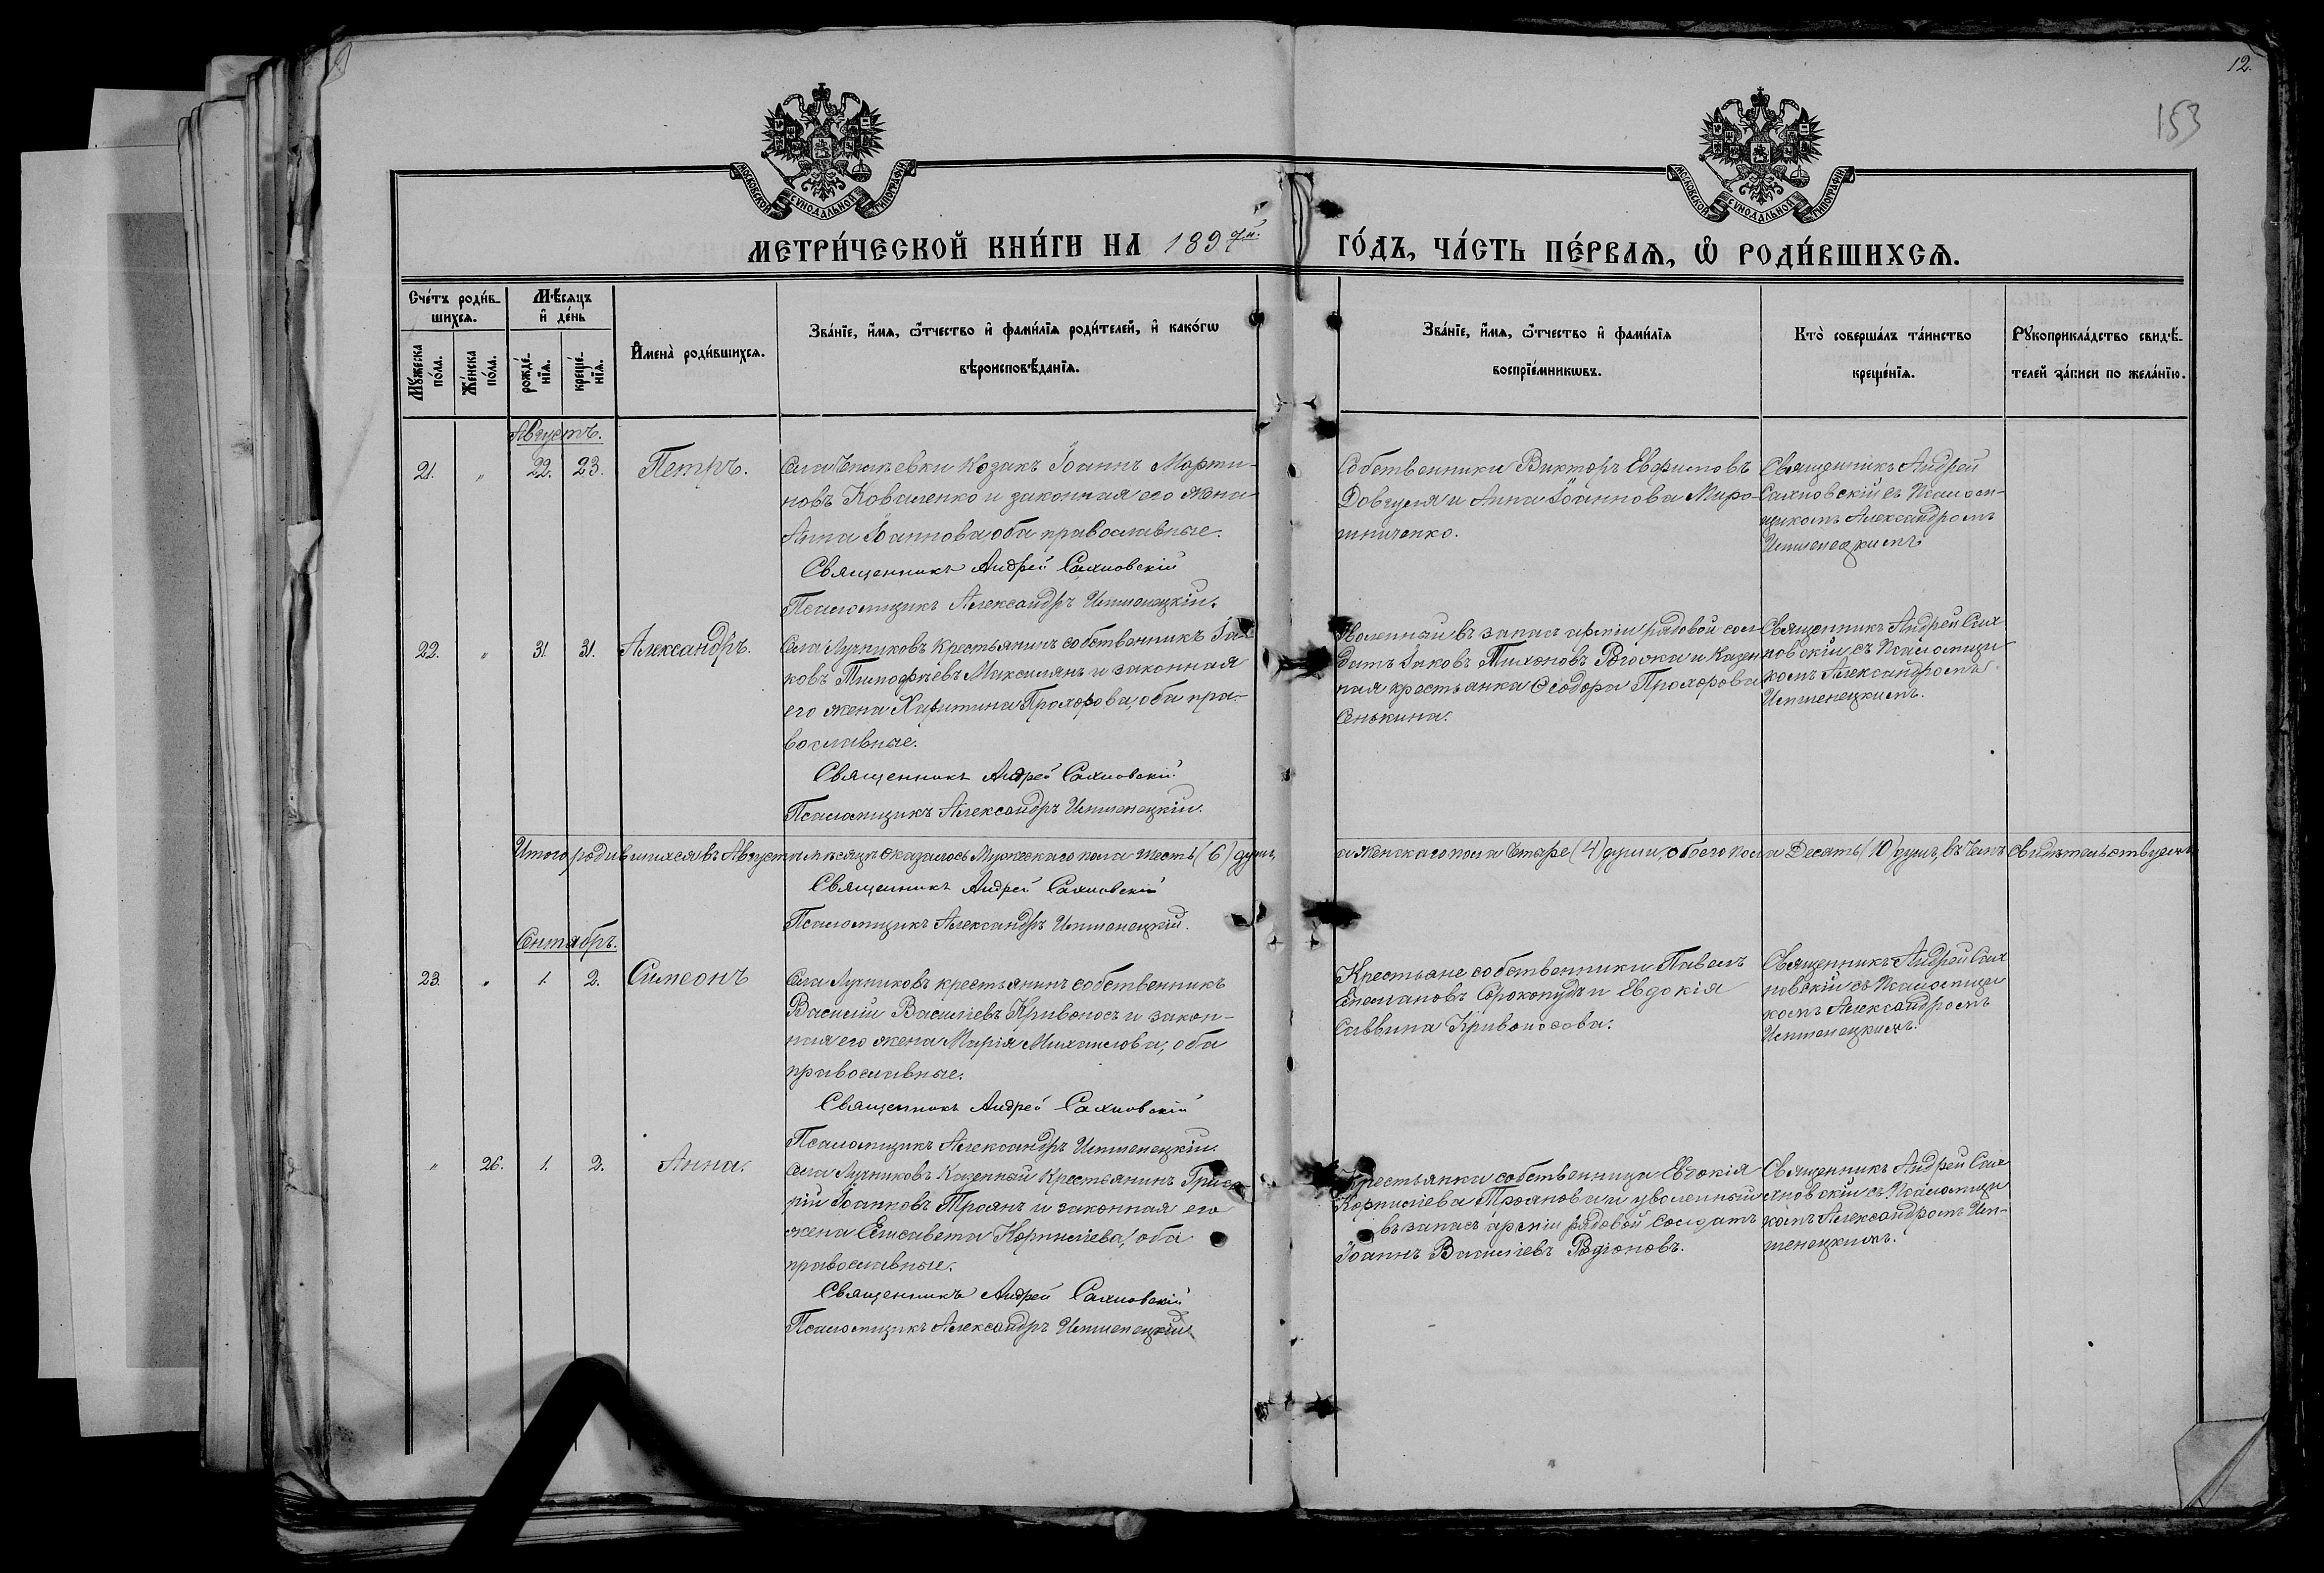 12.
153
МОСКОВСКОЙ СѴНОДАЛЬНОЙ ТИПОГРАФІИ
МОСКОВСКОЙ СѴНОДАЛЬНОЙ ТИПОГРАФІИ
МЕТРИ́ЧЕСКОЙ КНИ́ГИ НА 1897 го́дъ, ЧА́СТЬ ПЕ́РВАѦ, Ѡ҆ РОДИ́ВШИХСѦ.
Сче́тъ роди́в-
шихсѧ.
Мꙋ́жеска по́ла.
Же́нска по́ла.
Мѣ́сѧцъ
и҆ де́нь
рожде́-
нїѧ.
креще́-
нїѧ.
И҆мена̀ роди́вшихсѧ.
Зва́нїе, и҆́мѧ, ѻ҆́тчество и҆ фами́лїѧ роди́телей, и҆ како́гѡ
вѣроисповѣ́данїѧ.
Зва́нїе, и҆́мѧ, ѻ҆́тчество и҆ фами́лїѧ
воспрїе́мникѡвъ.
Кто̀ соверша́лъ та́инство
креще́нїѧ.
Рꙋкоприкла́дство свидѣ́-
телей за́писи по жела́нїю.
Августъ.
21. " 22. 23. Петръ.
Села козакъ Іоаннъ Марти-
новъ Коваленко и законная его жена
Анна Іоаннова, оба православные.
Священникъ Андрей Сахновскій
Псаломщикъ Александръ
Собственники Викторъ Евфимовъ
Довгуля и Анна Іоаннова Миро-
шниченко.
Священникъ Андрей
Сахновскій съ Псалом-
щикомъ Александромъ
22. " 31. 31. Александръ.
Села Лучниковъ крестьянинъ собственникъ Іа-
ковъ Тимофѣевъ Максимянъ и законная
его жена Харитина Прохорова, оба пра-
вославные.
Священникъ Андрей Сахновскій
Псаломщикъ Александръ
Уволенный въ запасъ арміи рядовой сол-
датъ Іаковъ Тихоновъ и Казен-
ная крестьянка Ѳеодора Прохорова
Сенькина.
Священникъ Андрей Сах-
новскій съ Псаломщи-
комъ Александромъ
Итого родившихся въ Августѣ мѣсяцѣ оказалось Мужескаго пола шесть (6) душъ, а Женскаго пола Четыре (4) души, обоего пола Десять (10) душъ, въ Чемъ свидѣтельствуемъ
Священникъ Андрей Сахновскій
Псаломщикъ Александръ
Сентябрь.
23. " 1. 2. Симеонъ
Села Лучниковъ крестьянинъ собственникъ
Василій Васильевъ Кривоносъ и закон-
ная его жена Марія Михаилова, оба
православные.
Священникъ Андрей Сахновскій
Псаломщикъ Александръ
Крестьяне собственники Павелъ
Сорокопудъ и Евдокія
Саввина Кривоносова.
Священникъ Андрей Сах-
новскій съ Псаломщи-
комъ Александромъ
" 26. 1. 2. Анна.
Села Лучниковъ Казенный Крестьянинъ Григо-
рій Іоанновъ Троянъ и законная его
жена Елисавета Корниліева, оба
православные.
Священникъ Андрей Сахновскій
Псаломщикъ Александръ
Крестьянка собственница Евдокія
Корниліева Троянова и уволенный
въ запасъ арміи рядовой Солдатъ
Іоаннъ Васильевъ Родіоновъ.
Священникъ Андрей Сах-
новскій съ Псаломщи-
комъ Александромъ